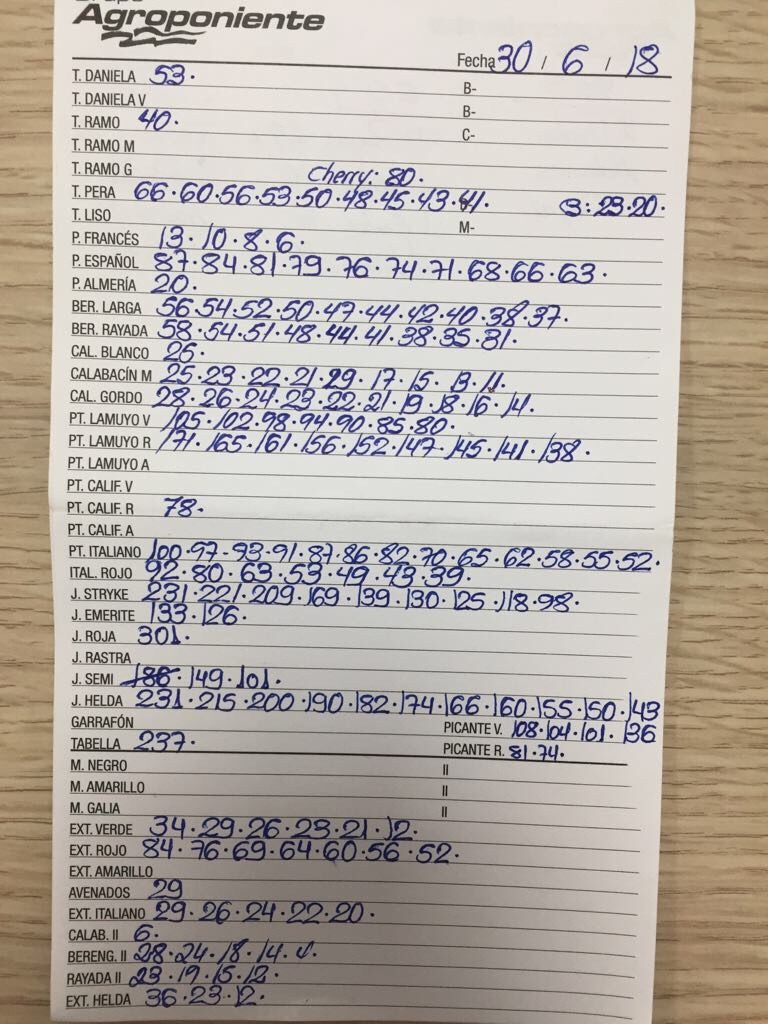 Agroponiente
Fecha 30 / 6 / 18
T. DANIELA 53. B-
T. DANIELA V B-
T. RAMO 40. C-
T. RAMO M
T. RAMO G Cherry: 80.
T. PERA 66.60.56.53.50.48.45.43.41. B: 23.20.
T. LISO M-
P. FRANCÉS 13.10.8.6.
P. ESPAÑOL 87.84.81.79.76.74.71.68.66.63.
P. ALMERÍA 20.
BER. LARGA 56.54.52.50.47.44.42.40.38.37.
BER. RAYADA 58.54.51.48.44.41.38.35.31.
CAL. BLANCO 25.
CALABACÍN M 25.23.22.21.29.17.15.13.11.
CAL. GORDO 28.26.24.23.22.21.19.18.16.14.
PT. LAMUYO V 105.102.98.94.90.85.80.
PT. LAMUYO R 171.165.161.156.152.147.145.141.138.
PT. LAMUYO A
PT. CALIF. V
PT. CALIF. R 78.
PT. CALIF. A
PT. ITALIANO 100.97.93.91.87.86.82.70.65.62.58.55.52.
ITAL. ROJO 92.80.63.53.49.43.39.
J. STRYKE 231.221.209.169.139.130.125.118.98.
J. EMERITE 133.126.
J. ROJA 301.
J. RASTRA
J. SEMI 186.149.101.
J. HELDA 231.215.200.190.182.174.166.160.155.150.143
GARRAFÓN PICANTE V. 108.104.101.136
TABELLA 237. PICANTE R. 81.74.
M. NEGRO II
M. AMARILLO II
M. GALIA II
EXT. VERDE 34.29.26.23.21.12.
EXT. ROJO 84.76.69.64.60.56.52.
EXT. AMARILLO
AVENADOS 29
EXT. ITALIANO 29.26.24.22.20.
CALAB. II 6.
BERENG. II 28.24.18.14.
RAYADA II 23.19.15.12.
EXT. HELDA 36.23.12.